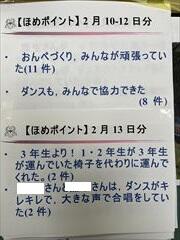 【ほめポイント】2月10-12日分
・ おんべづくり，みんなが頑張ってい
た(11件)
・ ダンスも、みんなで協力できた
(8 件)
【ほめポイント】2月13日分
・ 3年生より！1・2年生が3年生
が運んでいた椅子を代わりに運んで
くれた。(2件)
・ さんと さんは，ダンスが
キレキレで，大きな声で合唱をしてい
た(2件)